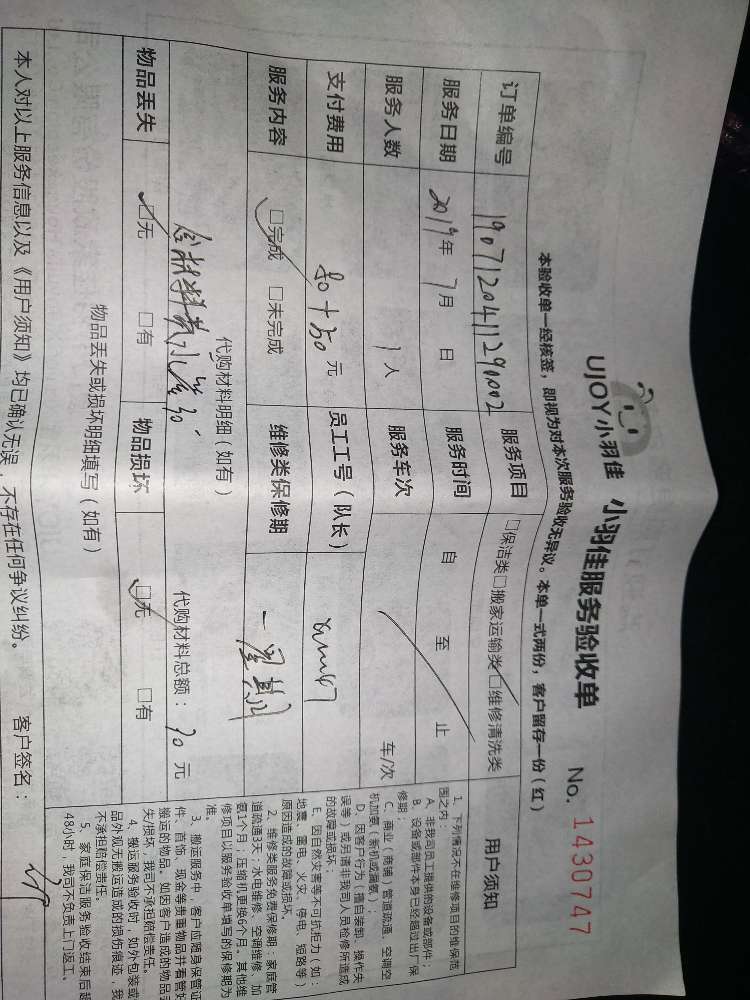 UJOY小羽佳 小羽佳服务验收单 No. 1430747
本验收单一经核签，即视为对本次服务验收无异议。本单一式两份，客户留存一份（红）
订单编号 1907120411290002 服务项目 □保洁类□搬家运输类□维修清洗类
服务日期 2019年 7月 日 服务时间 自 至 止
服务人数 1人 服务车次 车/次
支付费用 元 员工工号（队长）
服务内容 □完成 □未完成 维修类保修期 一星期
代购材料明细（如有） 代购材料总额： 30 元
物品丢失 □无 □有 物品损坏 □无 □有
物品丢失或损坏明细填写（如有）
本人对以上服务信息以及《用户须知》均已确认无误，不存在任何争议纠纷。 客户签名：
用户须知
1、下列情况不在维修项目的维保范
围之内：
A、非我司员工提供的设备或部件；
B、设备或部件本身已经超过出厂保
修期；
C、商业（商铺）管道疏通、空调空
机加氨（新机或漏氨）；
D、因客户行为（擅自装卸、操作失
误等）或另请非我司人员检修所造成
的故障或损坏；
E、因自然灾害等不可抗拒力（如：
地震、雷电、火灾、停电、短路等）
原因造成的故障或损坏。
2、维修类服务免费保修期：家庭管
道疏通3天；水电维修、空调维修、加
氨1个月；压缩机更换6个月。其他维
修项目以服务验收单填写的保修期为
准。
3、搬运服务中，客户应随身保管证
件、首饰、现金等贵重物品并看管好
搬运的物品。如因客户造成的物品丢
失/损坏，我司不承担赔偿责任。
4、搬运服务验收时，如外包装或
品外观无搬运造成的损伤痕迹，我
不承担赔偿责任。
5、家庭保洁服务验收结束后超
48小时，我司不负责上门返工。